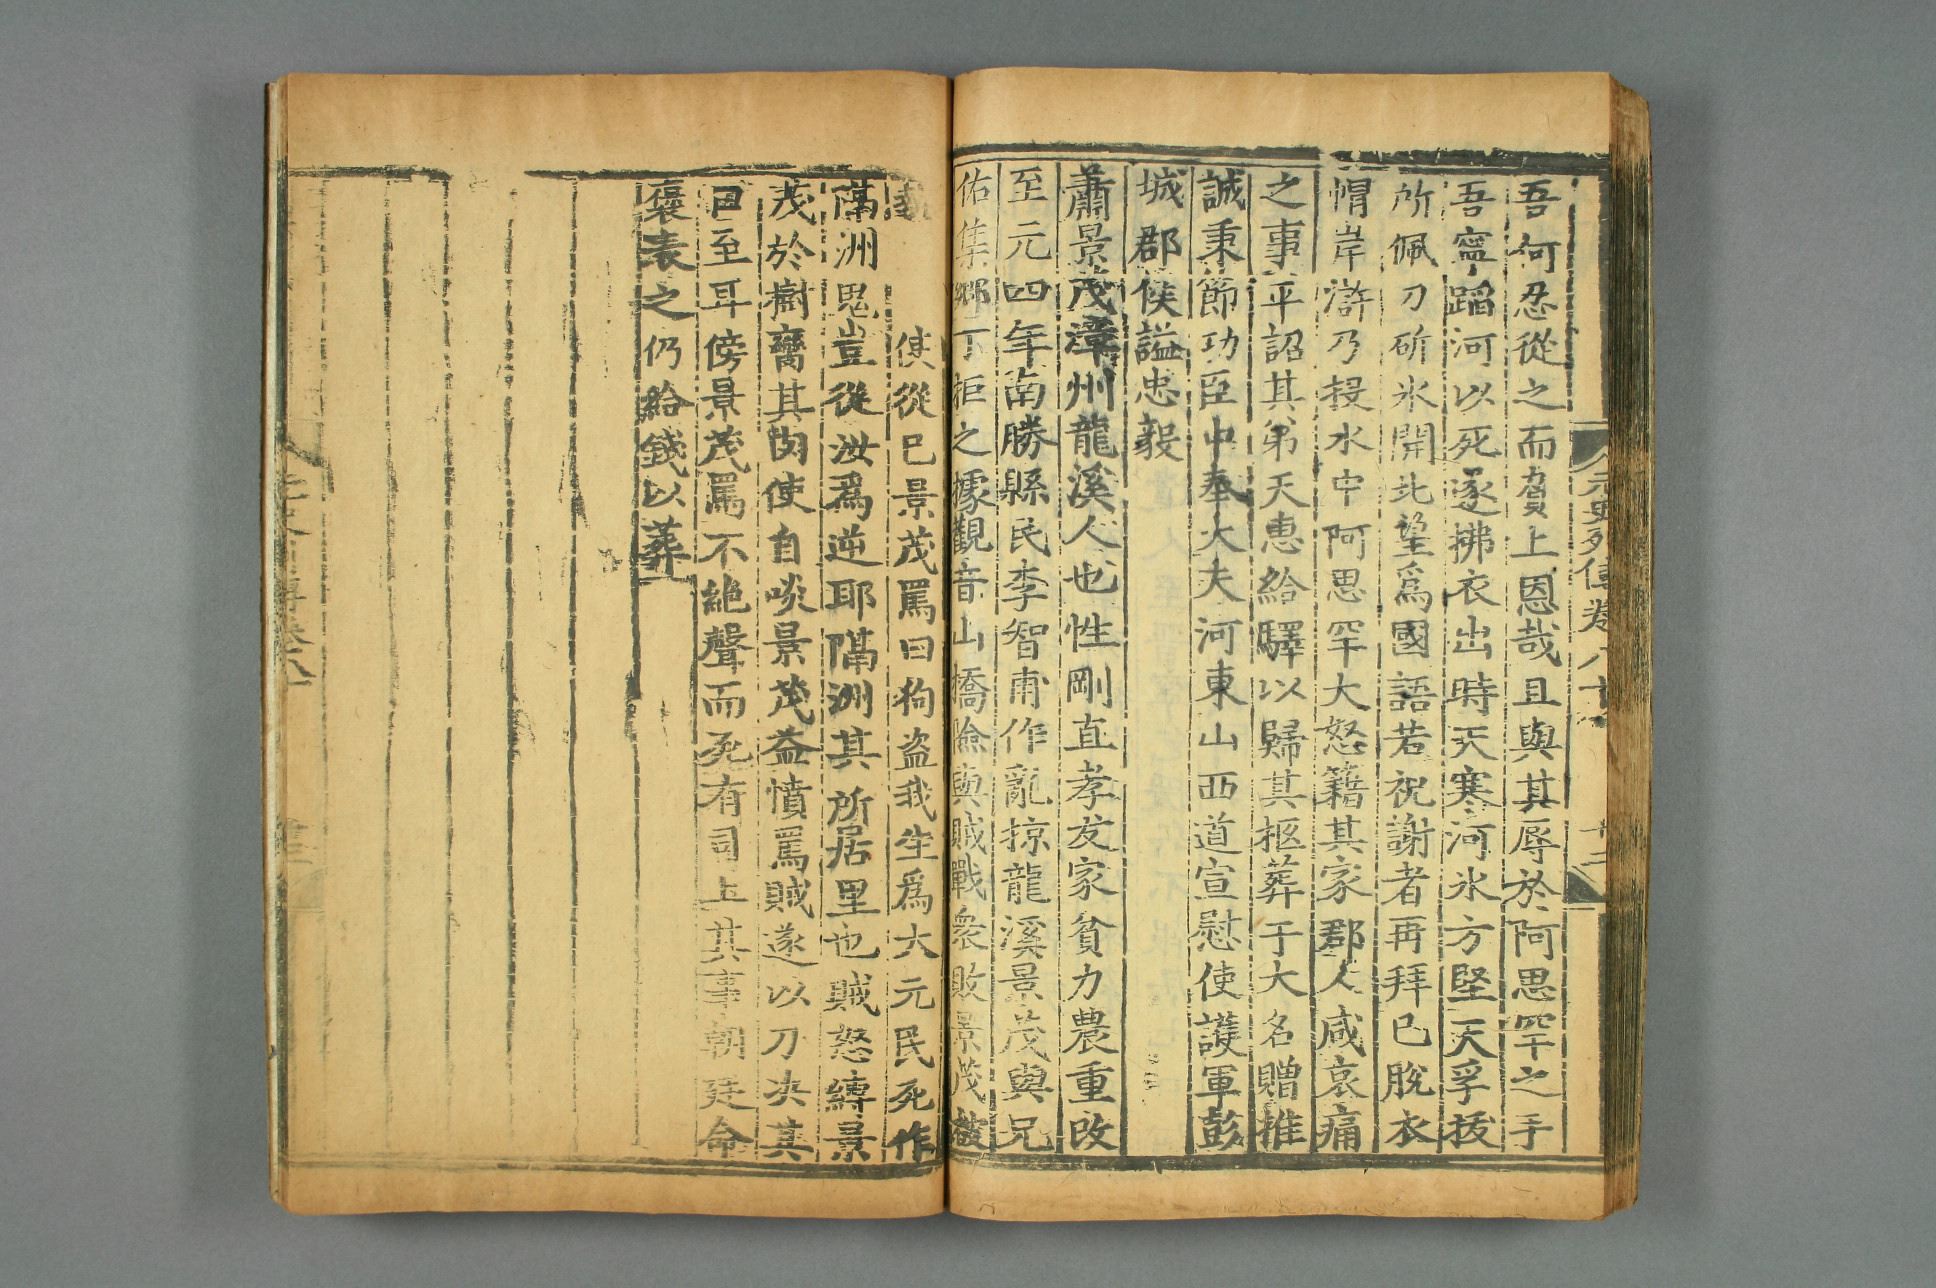 元史列傳卷八十 十二
吾何忍從之而負上恩哉且與其辱於阿思罕之手
吾寧蹈河以死遂拂衣出時天寒河氷方堅天孚拔
所佩刀斫氷開北望爲國語若祝謝者再拜已脫衣
帽岸滸乃投水中阿思罕大怒籍其家郡人咸哀痛
之事平詔其弟天惠給驛以歸其柩葬于大名贈推
誠秉節功臣中奉大夫河東山西道宣慰使護軍彭
城郡侯謚忠毅
蕭景茂漳州龍溪人也性剛直孝友家貧力農重改
至元四年南勝縣民李智甫作亂掠龍溪景茂與兄
佑集鄉丁拒之據觀音山橋險與賊戰衆敗景茂被
執 使從已景茂罵曰狗盜我生爲大元民死作
隔洲鬼豈從汝爲逆耶隔洲其所居里也賊怒縛景
茂於樹臠其肉使自啖景茂益憤罵賊遂以刀决其
口至耳傍景茂罵不絶聲而死有司上其事朝廷命
褒表之仍給錢以葬